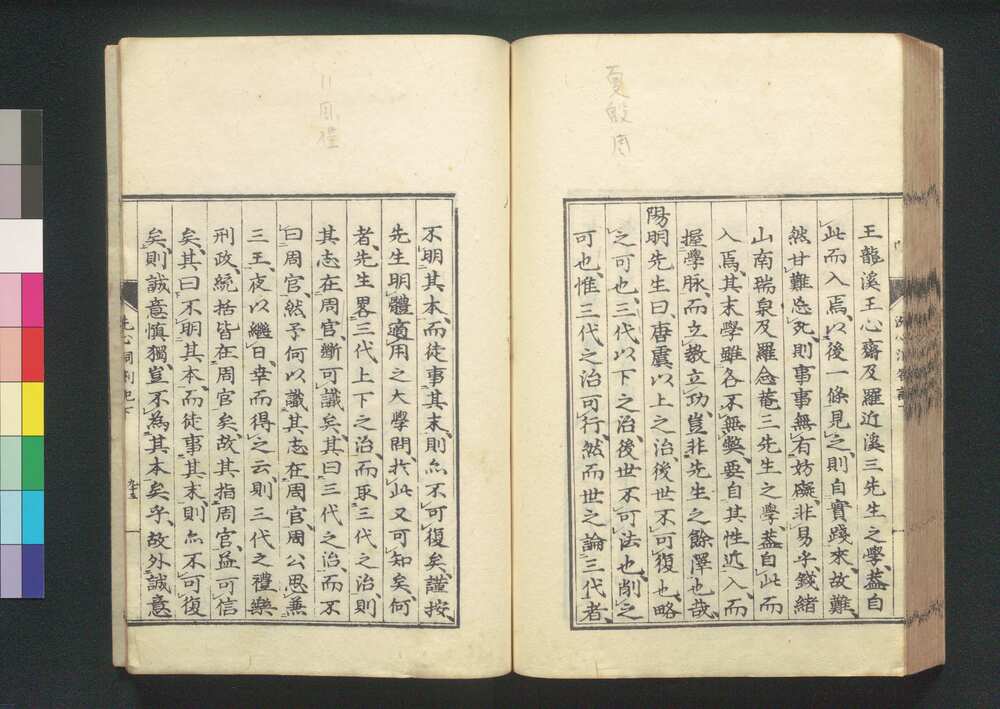 夏殷周
王龍溪王心齋及羅近溪三先生之學、蓋自
此而入焉、以後一條見之、則自實踐來、故難
然甘難忘死、則事事無有妨礙、非易乎、錢緒
山南瑞泉及羅念菴三先生之學、蓋自此而
入焉、其末學雖各不無弊、要自其性近入、而
握學脈、而立教立功、豈非先生之餘澤也哉
陽明先生曰唐虞以上之治、後世不可復也、略
之可也、三代以下之治、後世不可法也、削之
可也、惟三代之治可行、然而世之論三代者、
不明其本、而徒事其末、則亦不可復矣、謹按、
先生明體適用之大學問、於此又可知矣、何
者、先生畧三代上下之治、而取三代之治、則
其志在周官、斷可識矣、其曰三代之治、而不
曰周官、然予何以識其志在周官、周公思兼
三王、夜以繼日、幸而得之云、則三代之禮樂
刑政、統括皆在周官矣、故其指周官、益可信
矣、其曰不明其本、而徒事其末、則亦不可復
矣、則誠意慎獨、豈不為其本矣乎、故外誠意
洗心洞劄記下
九十五